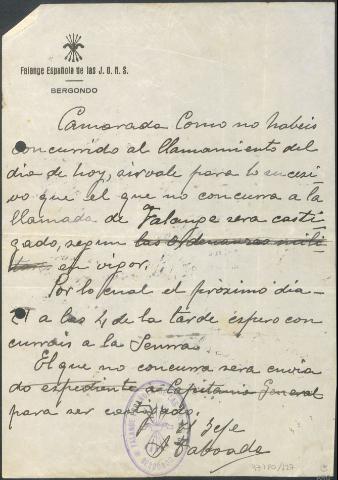 Falange Española de las J. O. N. S.
BERGONDO
Camarada Como no habéis
concurrido al llamamiento del
dia de hoy, sirvale para lo sucesi
vo que el que no concurra a la
llamada de Falange sera casti
gado, segun las Ordenanzas mili
tares en vigor.
Por lo cual el próximo dia
21 a las 4 de la tarde espero con
curráis a la
El que no concurra sera envia
do expediente a Capitania General
para ser castigado.
El Jefe
A Taboada